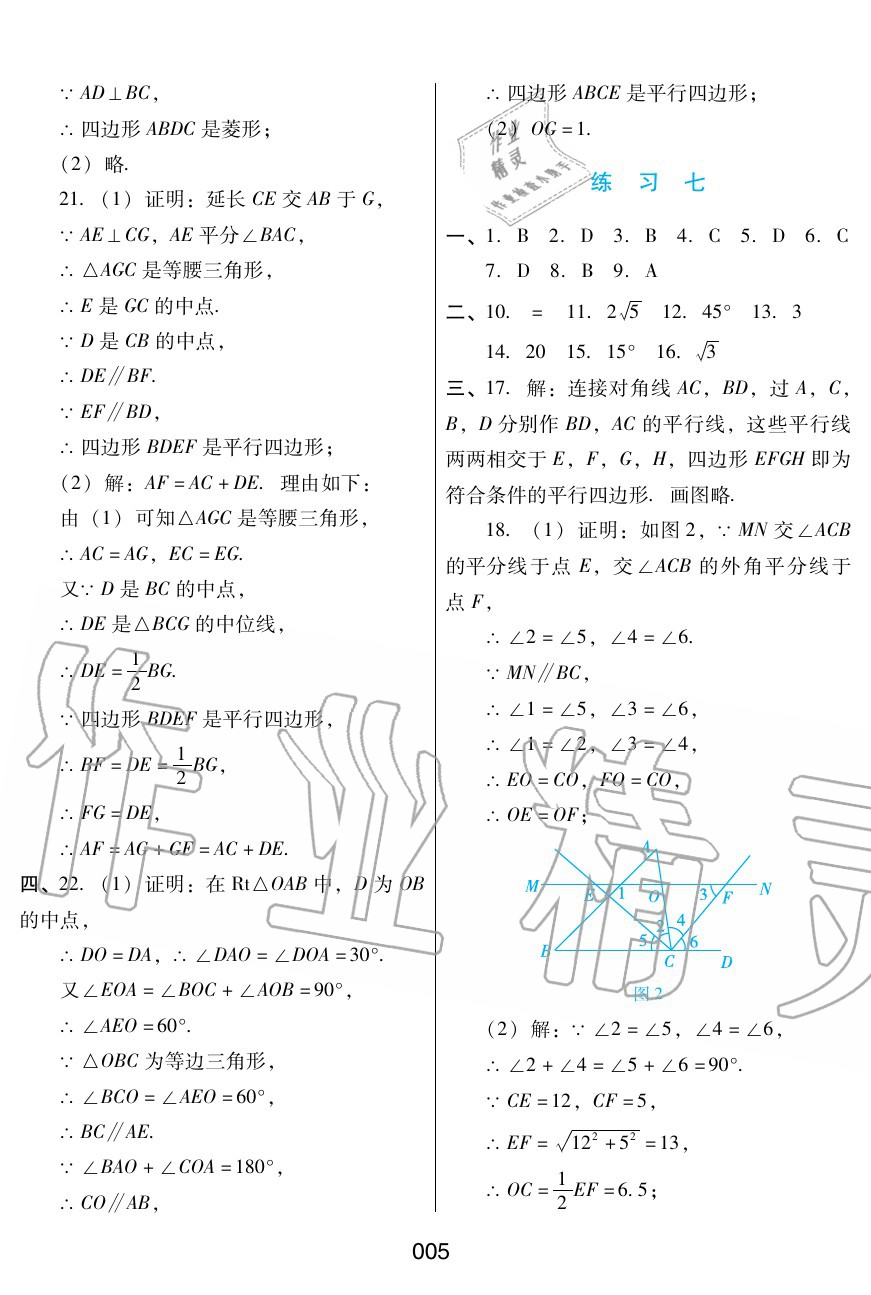 ∵ AD⊥BC，
∴ 四边形 ABDC 是菱形；
（2）略.
21. （1）证明：延长 CE 交 AB 于 G，
∵ AE⊥CG，AE 平分∠BAC，
∴ △AGC 是等腰三角形，
∴ E 是 GC 的中点.
∵ D 是 CB 的中点，
∴ DE∥BF.
∵ EF∥BD，
∴ 四边形 BDEF 是平行四边形；
（2）解：AF = AC + DE. 理由如下：
由（1）可知△AGC 是等腰三角形，
∴ AC = AG，EC = EG.
又∵ D 是 BC 的中点，
∴ DE 是△BCG 的中位线，
∴ DE = 1/2 BG.
∵ 四边形 BDEF 是平行四边形，
∴ BF = DE = 1/2 BG，
∴ FG = DE，
∴ AF = AG + GF = AC + DE.
四、22. （1）证明：在 Rt△OAB 中，D 为 OB
的中点，
∴ DO = DA，∴ ∠DAO = ∠DOA = 30°.
又∠EOA = ∠BOC + ∠AOB = 90°，
∴ ∠AEO = 60°.
∵ △OBC 为等边三角形，
∴ ∠BCO = ∠AEO = 60°，
∴ BC∥AE.
∵ ∠BAO + ∠COA = 180°，
∴ CO∥AB，
∴ 四边形 ABCE 是平行四边形；
（2）OG = 1.
练 习 七
一、1. B 2. D 3. B 4. C 5. D 6. C
7. D 8. B 9. A
二、10. = 11. 2√5 12. 45° 13. 3
14. 20 15. 15° 16. √3
三、17. 解：连接对角线 AC，BD，过 A，C，
B，D 分别作 BD，AC 的平行线，这些平行线
两两相交于 E，F，G，H，四边形 EFGH 即为
符合条件的平行四边形. 画图略.
18. （1）证明：如图 2，∵ MN 交∠ACB
的平分线于点 E，交∠ACB 的外角平分线于
点 F，
∴ ∠2 = ∠5，∠4 = ∠6.
∵ MN∥BC，
∴ ∠1 = ∠5，∠3 = ∠6，
∴ ∠1 = ∠2，∠3 = ∠4，
∴ EO = CO，FO = CO，
∴ OE = OF；
A
M E 1 O 3 F N
2 4
B 5 6
C D
图 2
（2）解：∵ ∠2 = ∠5，∠4 = ∠6，
∴ ∠2 + ∠4 = ∠5 + ∠6 = 90°.
∵ CE = 12，CF = 5，
∴ EF = √(12² + 5²) = 13，
∴ OC = 1/2 EF = 6.5；
005
作业精灵
作业检查小助手
作业精灵